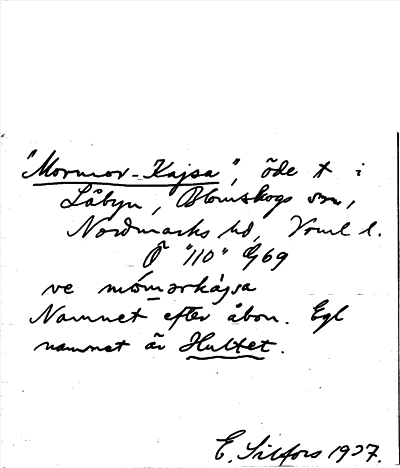 "Mormor-Kajsa", öde t i
Låbyn, Blomskogs sn,
Nordmarks hd, Vrml l.
"110" G69
ve mómorkajsa
Namnet efter åbon. Egl
namnet är Hultet.
E. Silfors 1927.